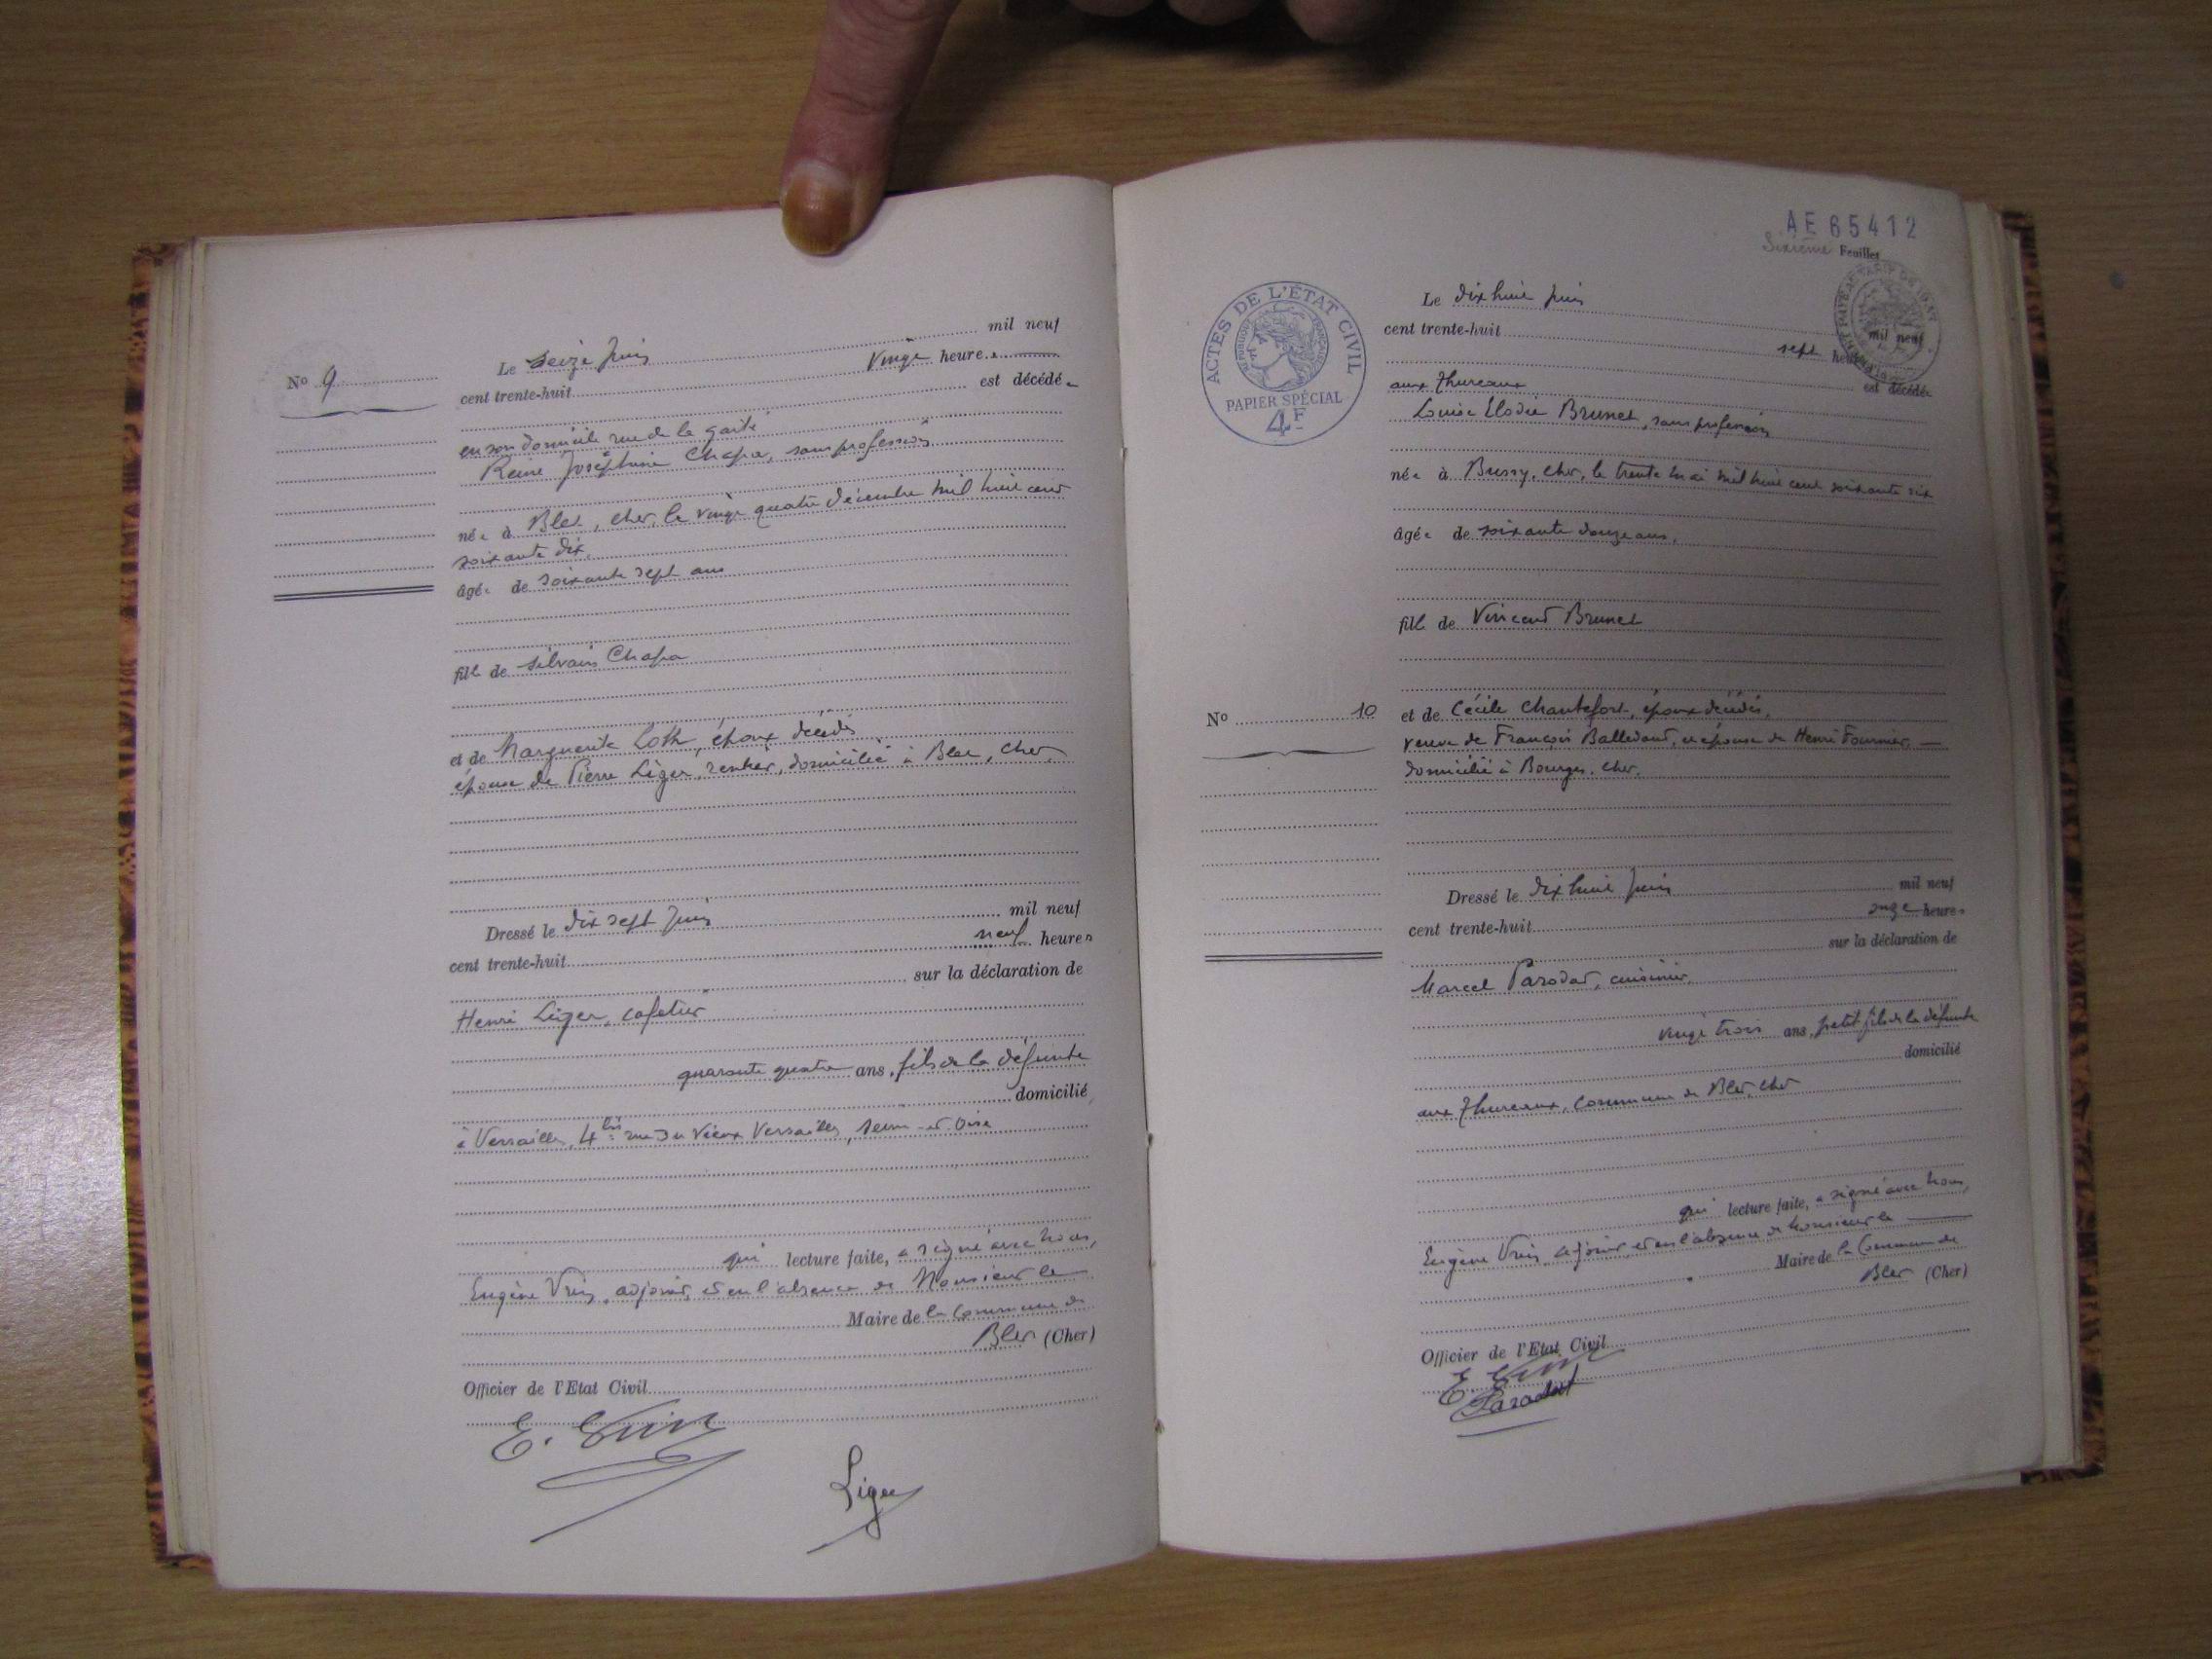 No 9
Le seize juin mil neuf
cent trente-huit vingt heures
est décédée
en son domicile rue de la gaité
Reine Joséphine Chapa, sans profession
née à Blet, Cher, le vingt quatre décembre mil huit cent
soixante dix,
âgée de soixante sept ans
fille de Silvain Chapa
et de Marguerite Loth, époux décédés
épouse de Pierre Léger, rentier, domicilié à Blet, Cher
Dressé le dix sept juin mil neuf
cent trente-huit neuf heures
sur la déclaration de
Henri Léger, cafetier
quarante quatre ans, fils de la défunte
domicilié
à Versailles, 4 bis rue du Vieux Versailles, Seine et Oise
qui lecture faite, a signé avec nous,
Eugène Vrin, adjoint, et en l'absence de Monsieur le
Maire de la Commune de
Blet (Cher)
Officier de l'Etat Civil
E. Vrin
Léger
AE 65412
Sixième Feuillet
ACTES DE L'ÉTAT CIVIL
RÉPUBLIQUE FRANÇAISE
PAPIER SPÉCIAL
4F
Le dix huit juin
cent trente-huit mil neuf
sept heures
aux Thureaux est décédée
Louise Elodie Brunet, sans profession
née à Bussy, Cher, le trente mai mil huit cent soixante six
âgée de soixante douze ans,
fille de Vincent Brunet
No 10
et de Cécile Chantefort, époux décédés,
veuve de François Balledent, et épouse de Henri Fournier,
domicilié à Bourges, Cher.
Dressé le dix huit juin mil neuf
cent trente-huit onze heures
sur la déclaration de
Marcel Paradat, cuisinier,
vingt trois ans, petit fils de la défunte
domicilié
aux Thureaux, commune de Blet, Cher
qui lecture faite, a signé avec nous,
Eugène Vrin, adjoint, et en l'absence de Monsieur le
Maire de la Commune de
Blet (Cher)
Officier de l'Etat Civil
E. Vrin
Paradat